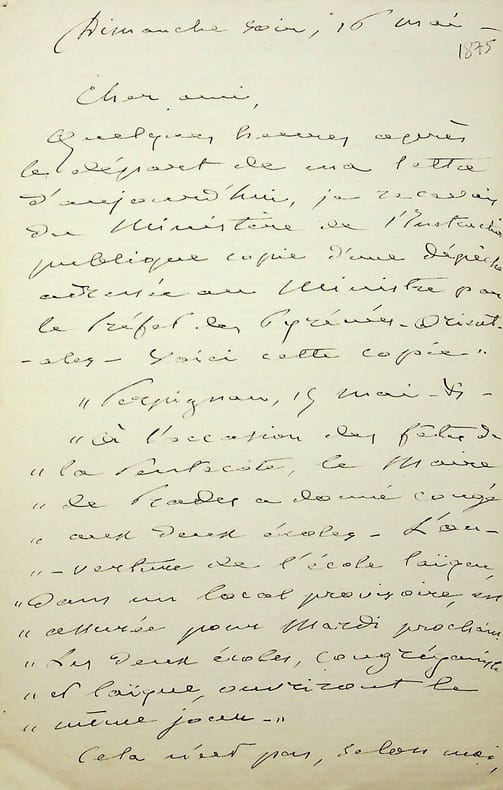 Dimanche soir, 16 mai -
1875
Cher ami,
Quelques heures après
le départ de ma lettre
d'aujourd'hui, je recevais
du Ministère de l'Instructi
publique copie d'une dépêche
adressée au Ministre par
le Préfet des Pyrénées-Orient
-ales - Voici cette copie "
" Perpignan, 15 mai -
" à l'occasion des fêtes de
" la Pentecôte, le Maire
" de Prades a donné congé
" aux deux écoles - L'ou-
" -verture de l'école laïque,
" dans un local provisoire, est
" assurée pour Mardi prochain
" Les deux écoles, congréganiste
" et laïque, ouvriront le
" même jour - "
Cela n'est pas, selon moi,